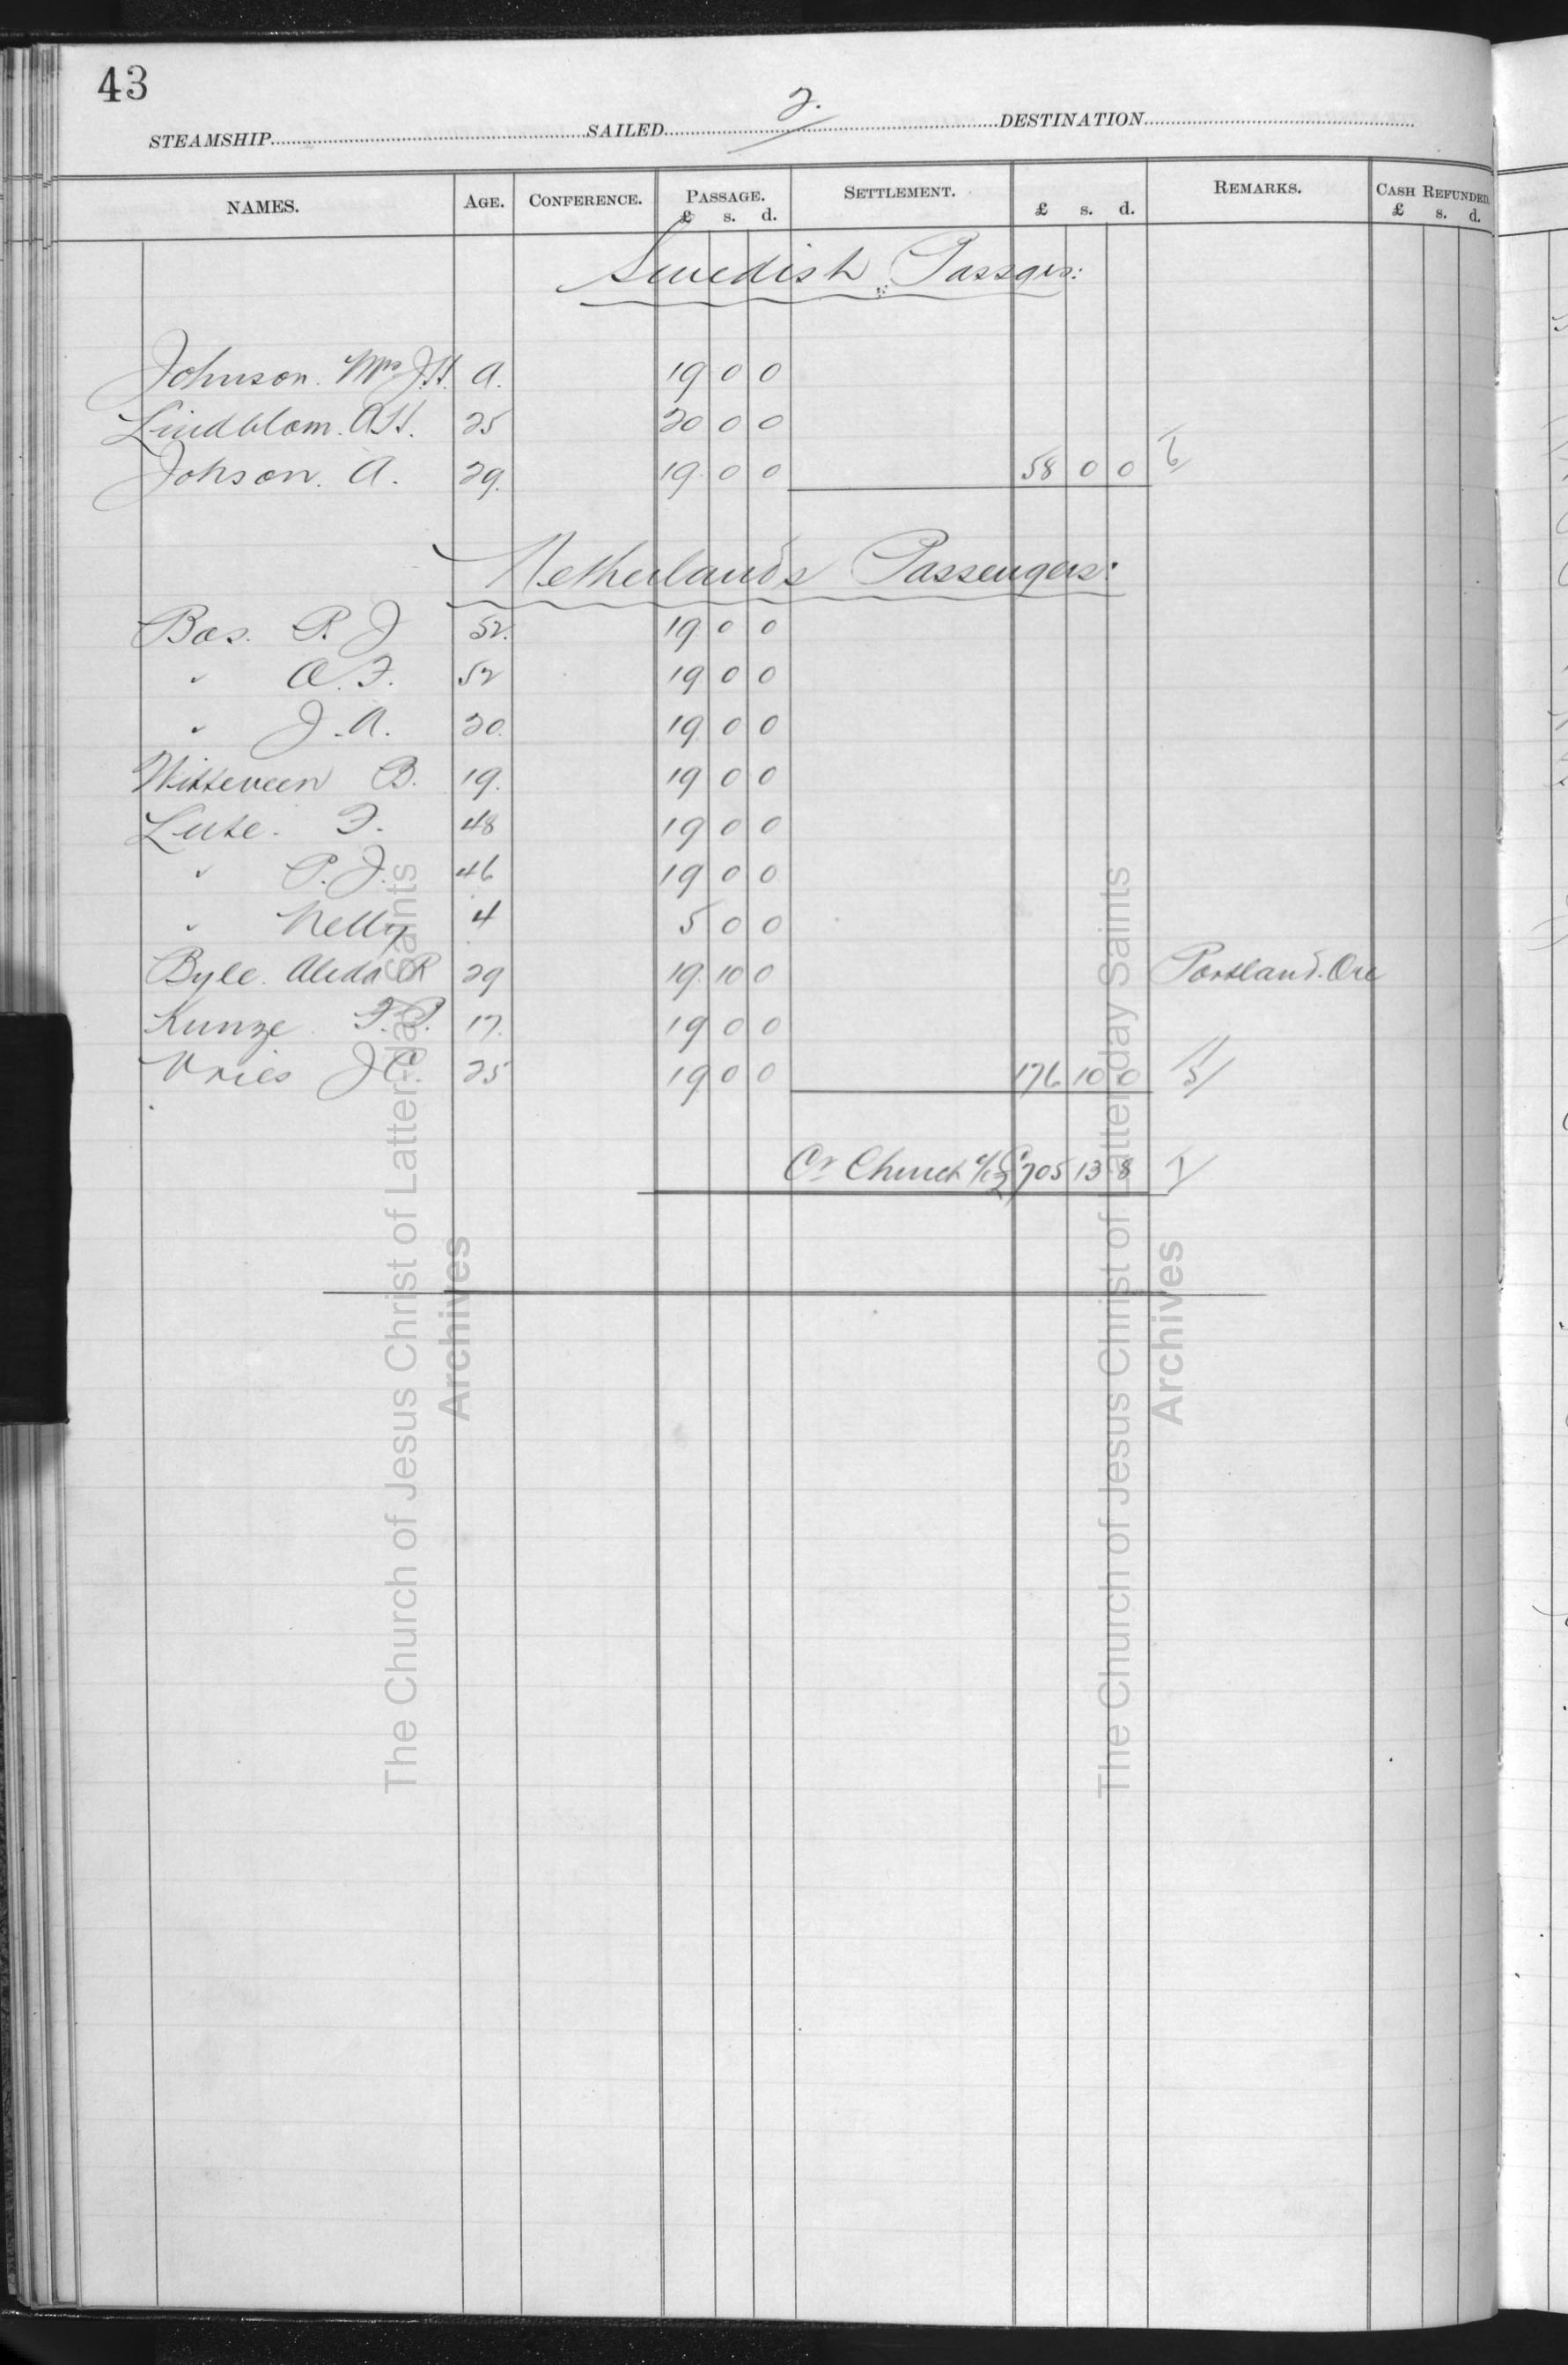 43
2.
STEAMSHIP SAILED DESTINATION
NAMES. AGE. CONFERENCE. PASSAGE. £ s. d. SETTLEMENT. £ s. d. REMARKS. CASH REFUNDED. £ s. d.
Swedish Passgrs:
Johnson. Mrs J.H. A. 19 0 0
Lindblom. A.H. 25 20 0 0
Johson. A. 29. 19 0 0 58 0 0 6/
Netherlands Passengers:
Bas. P. J 52. 19 0 0
" A. F. 52 19 0 0
" J. A. 20. 19 0 0
Witteveen B. 19. 19 0 0
Lute. F. 48 19 0 0
" P. J. 46 19 0 0
" Nelly 4 5 0 0
Byle. Aleda R 29 19 10 0 Portland. Ore
Kunze F. P. 17. 19 0 0
Vries J C. 25 19 0 0 176 10 0
Cr Church a/c £705 13 8
The Church of Jesus Christ of Latter-day Saints
Archives
The Church of Jesus Christ of Latter-day Saints
Archives